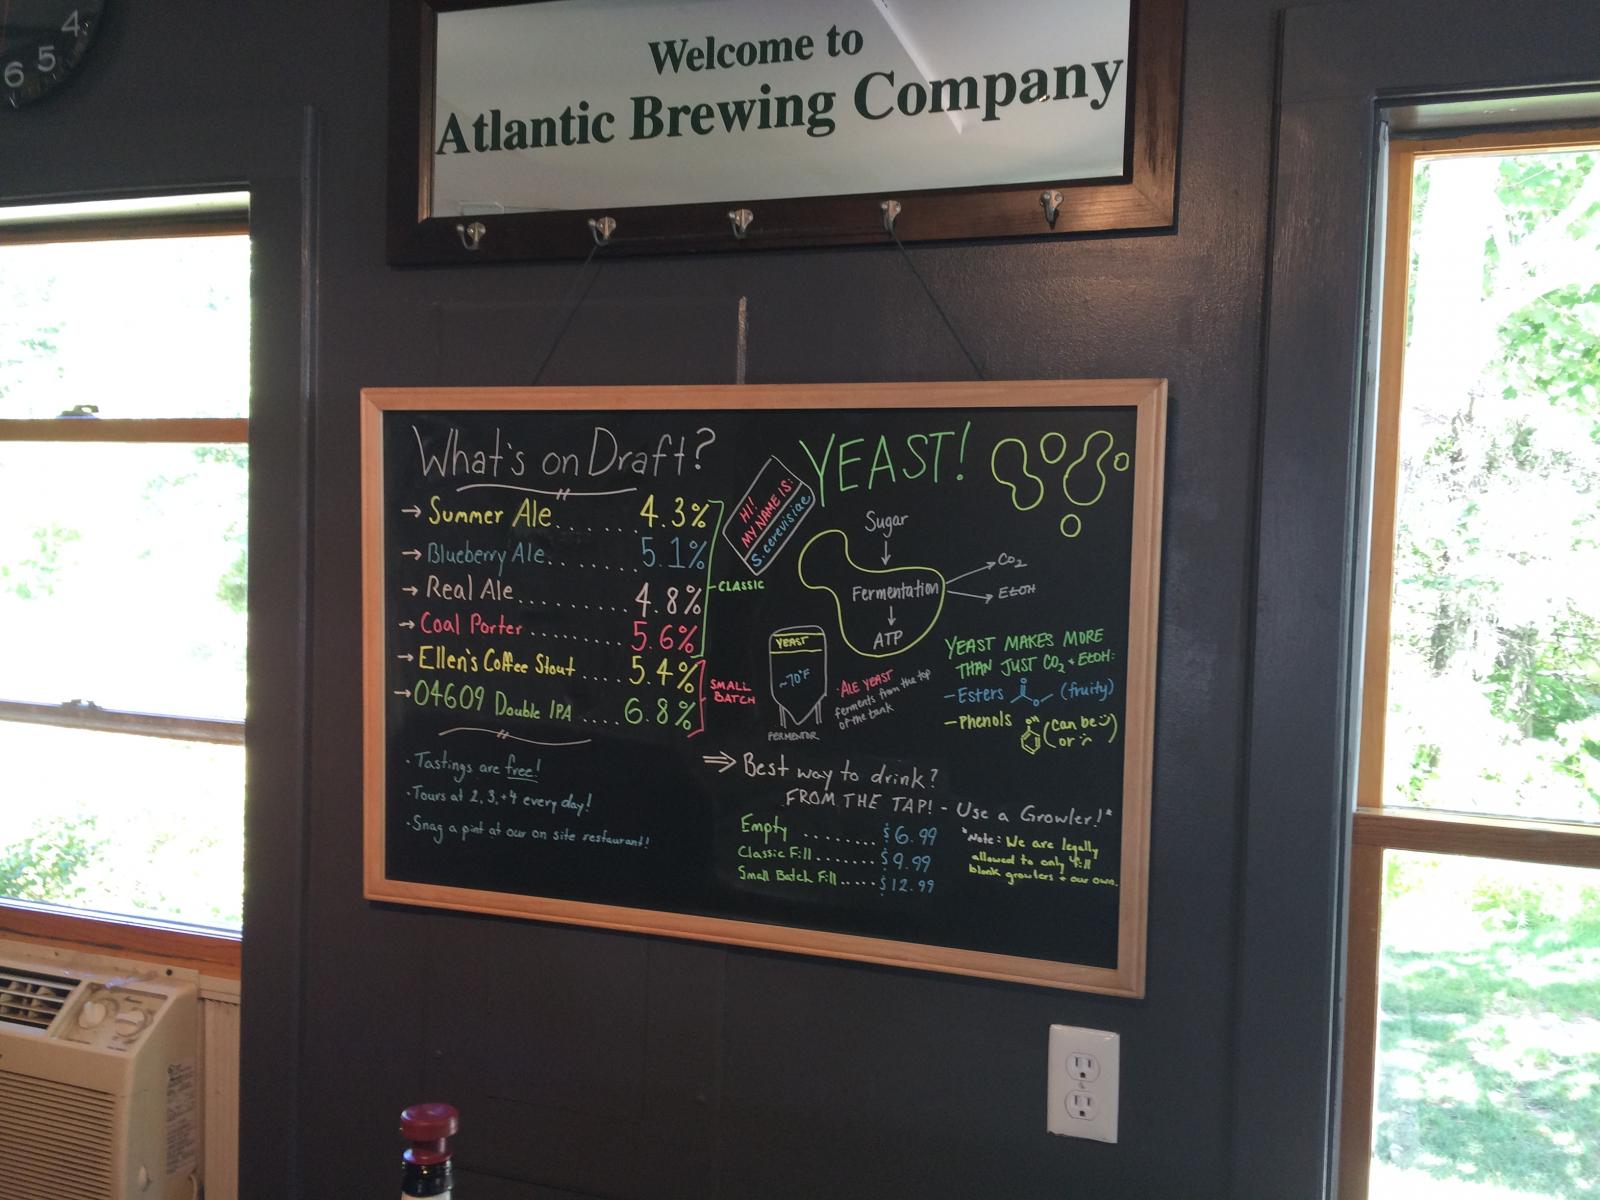 4
5
6
Welcome to
Atlantic Brewing Company
What's on Draft?
→ Summer Ale...... 4.3%
→ Blueberry Ale....... 5.1%
→ Real Ale......... 4.8%
→ Coal Porter ........ 5.6%
CLASSIC
→ Ellen's Coffee Stout .... 5.4%
→ 04609 Double IPA .... 6.8%
SMALL
BATCH
· Tastings are free!
· Tours at 2, 3, + 4 every day!
· Snag a pint at our on site restaurant!
HI!
MY NAME IS:
S. cerevisiae
YEAST!
Sugar
Fermentation
CO2
EtOH
ATP
YEAST
~70°F
FERMENTOR
· ALE YEAST
ferments from the top
of the tank
YEAST MAKES MORE
THAN JUST CO2 + EtOH:
- Esters (fruity)
- Phenols OH (can be :)
or :()
⇒ Best way to drink?
FROM THE TAP! - Use a Growler!*
Empty ....... $6.99
Classic Fill....... $9.99
Small Batch Fill..... $12.99
*Note: We are legally
allowed to only fill
blank growlers + our own.